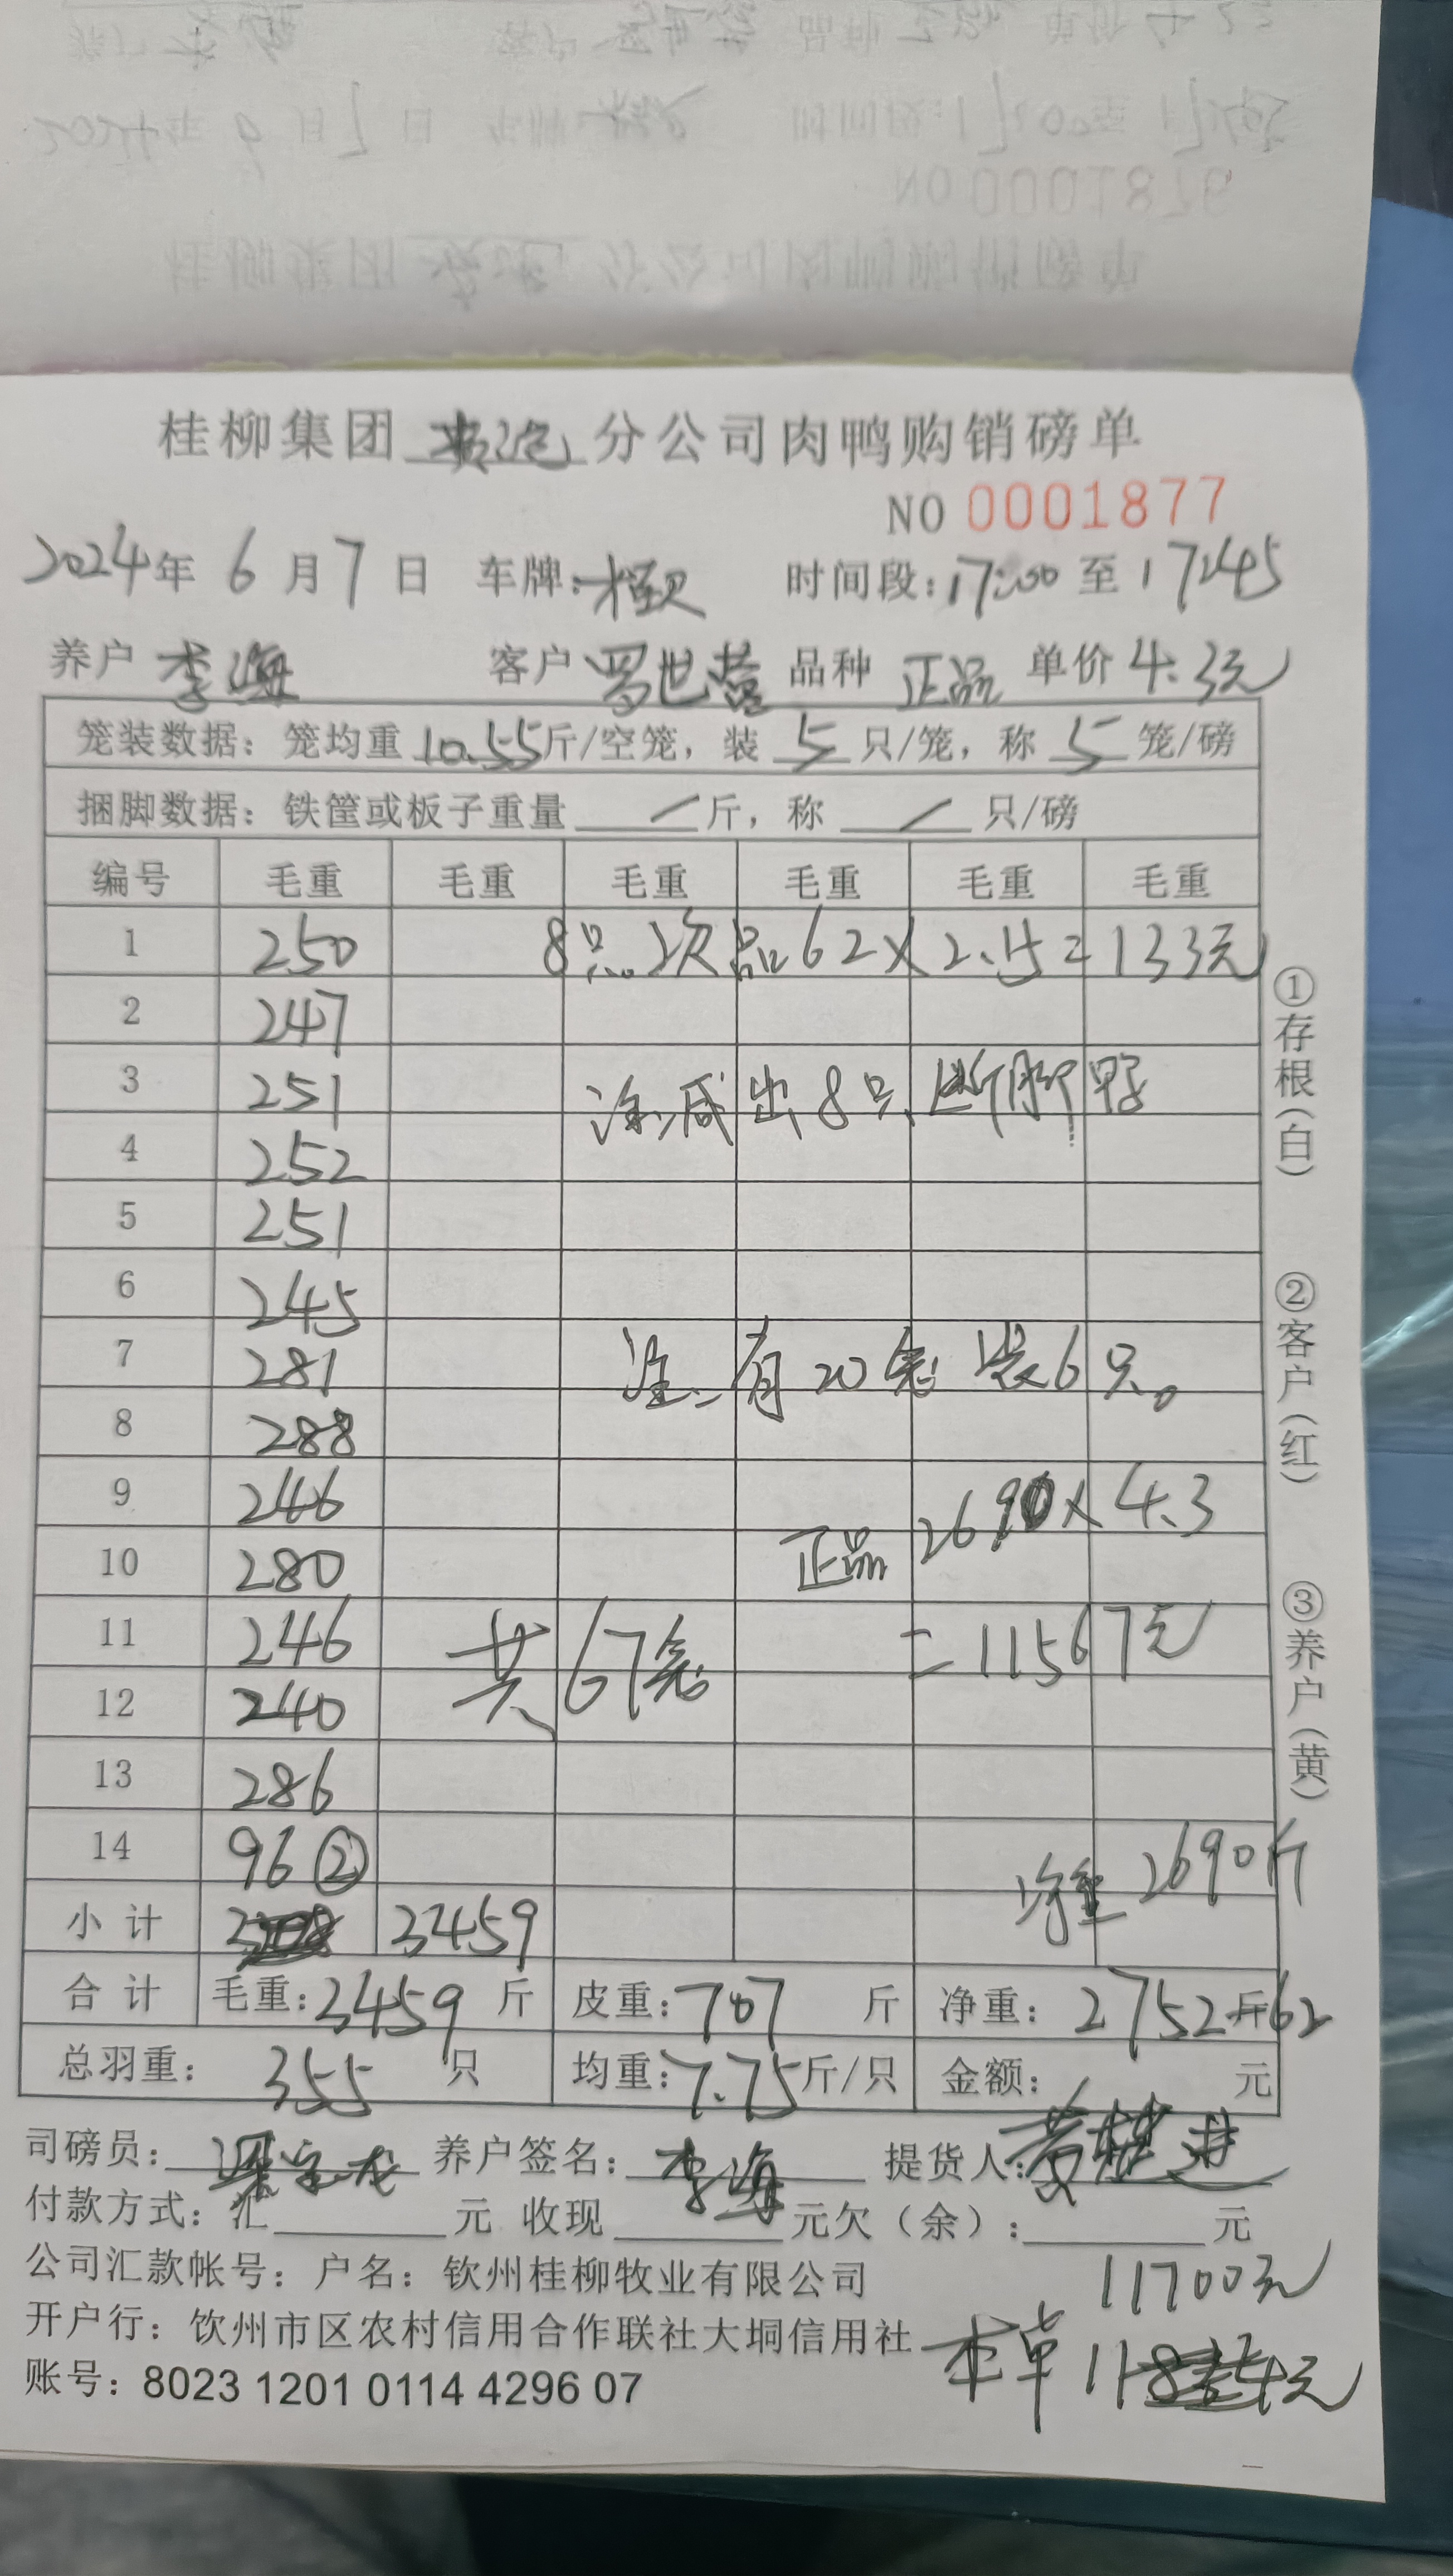 桂柳集团 分公司肉鸭购销磅单
NO 0001877
2024年 6月7日 车牌: 时间段:17:00至17:45
养户 李海 客户 罗世营 品种 正品 单价 4.3元
笼装数据: 笼均重 10.55斤/空笼, 装 5 只/笼, 称 5 笼/磅
捆脚数据: 铁筐或板子重量 / 斤, 称 / 只/磅
编号 毛重 毛重 毛重 毛重 毛重 毛重
1 250 8只次品62×2.15=133元
2 247
3 251 注:减出8只断脚鸭
4 252
5 251
6 245
7 281 注:有20笼装6只。
8 288
9 246 正品2690×4.3
10 280
11 246 共67笼 =11567元
12 240
13 286
14 96② 净重2690斤
小计 3459
合计 毛重:3459斤 皮重:707斤 净重:2752斤62
总羽重: 355只 均重:7.75斤/只 金额: 元
司磅员: 养户签名:李海 提货人:
付款方式: 汇 元 收现 元欠(余): 元
公司汇款帐号: 户名: 钦州桂柳牧业有限公司
11700元
开户行: 饮州市区农村信用合作联社大垌信用社
本单
账号: 8023 1201 0114 4296 07
①存根(白)
②客户(红)
③养户(黄)